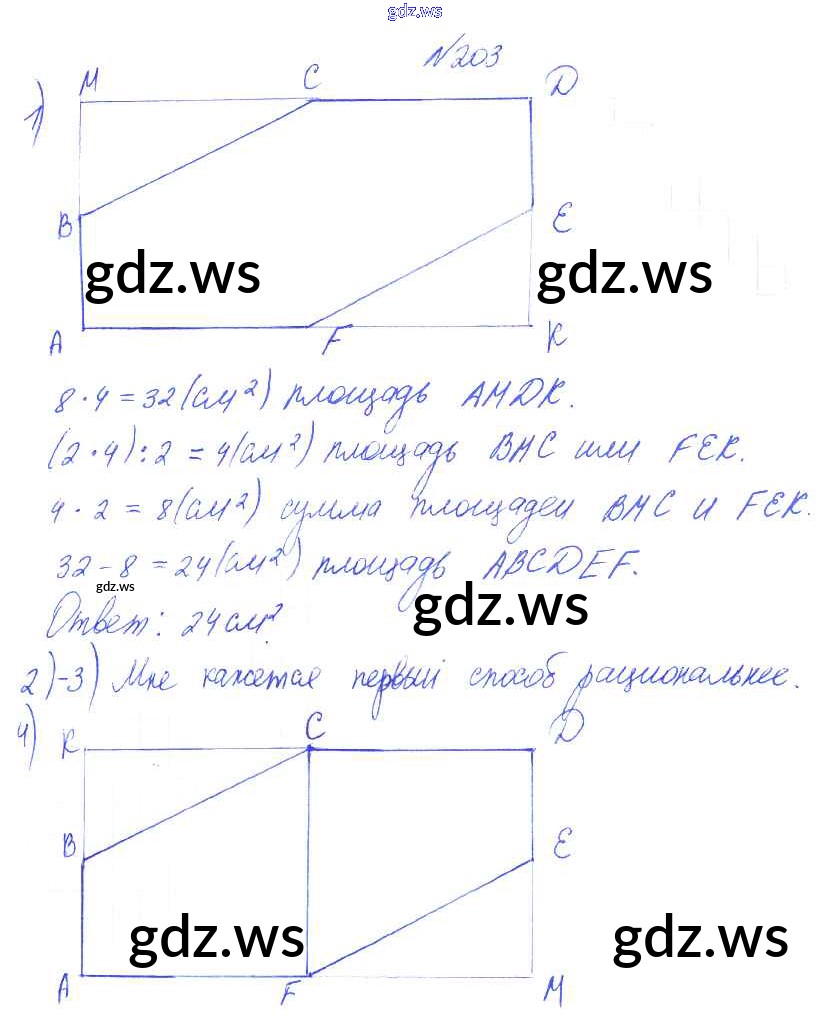 gdz.ws
N203
1)
M C D
B E
gdz.ws gdz.ws
A F K
8·4=32(см²) площадь AMDK.
(2·4):2=4(см²) площадь BMC или FEK.
4·2=8(см²) сумма площадей BMC и FEK.
32-8=24(см²) площадь ABCDEF.
gdz.ws gdz.ws
Ответ: 24см².
2)-3) Мне кажется первый способ рациональнее.
4)
K C D
B E
gdz.ws gdz.ws
A F M